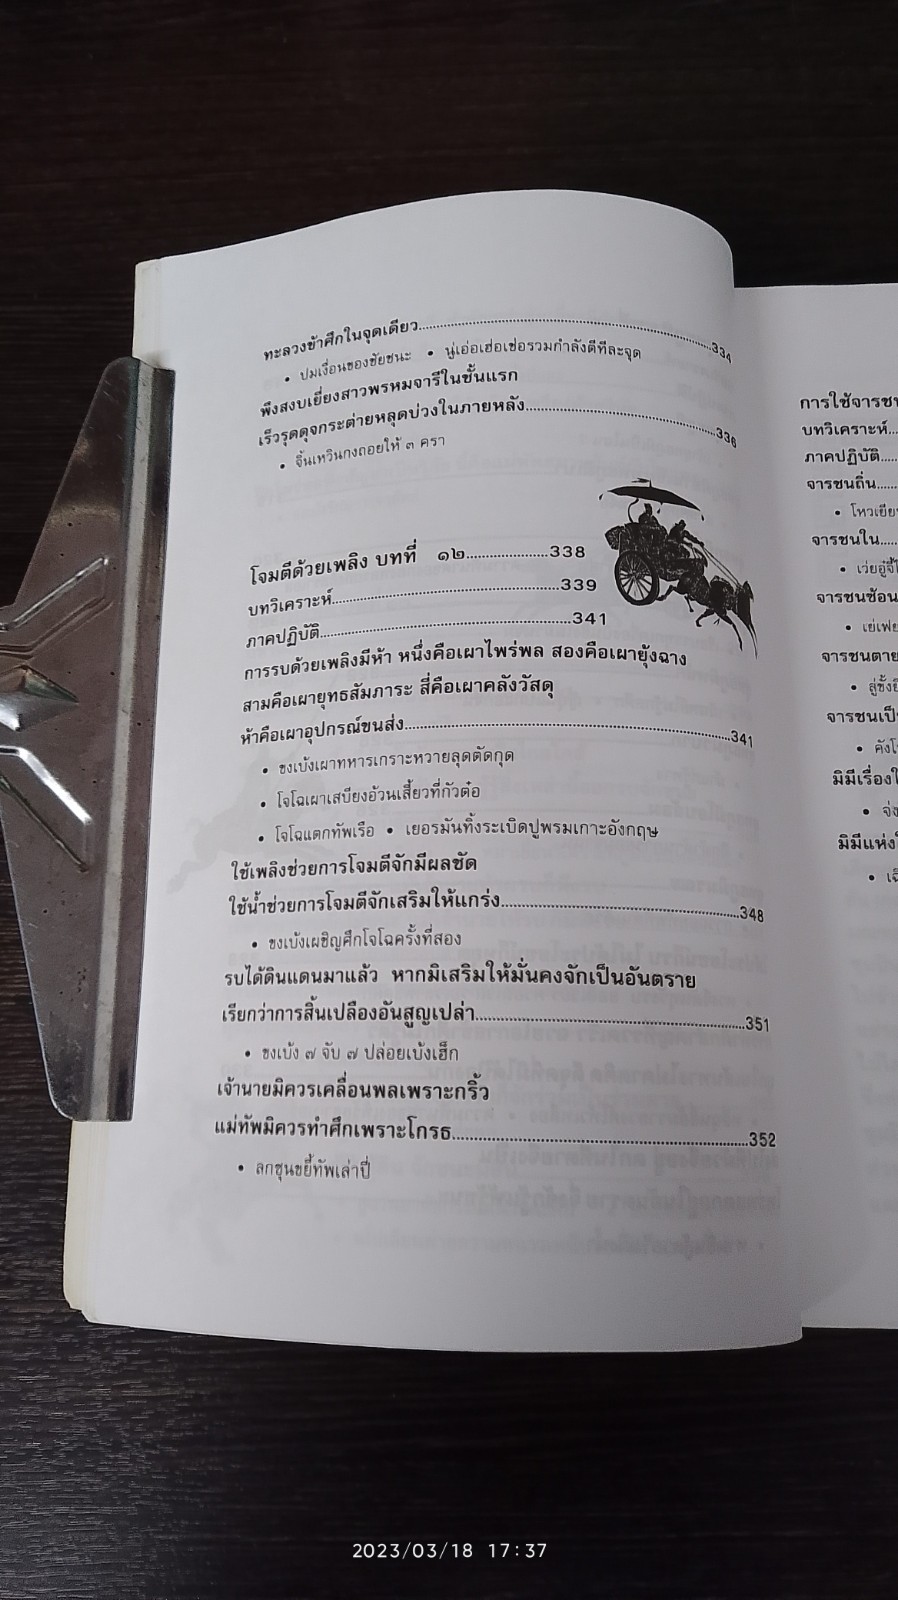 ทะลวงข้าศึกในจุดเดียว....................334
• ปมเงื่อนของชัยชนะ • นู่เอ่อเฮ่อเช่อรวมกำลังตีทีละจุด
พึงสงบเยี่ยงสาวพรหมจารีในชั้นแรก
เร็วรุดดุจกระต่ายหลุดบ่วงในภายหลัง....................336
• จิ้นเหวินกงถอยให้ ๓ ครา
โจมตีด้วยเพลิง บทที่ ๑๒....................338
บทวิเคราะห์....................339
ภาคปฏิบัติ....................341
การรบด้วยเพลิงมีห้า หนึ่งคือเผาไพร่พล สองคือเผายุ้งฉาง
สามคือเผายุทธสัมภาระ สี่คือเผาคลังวัสดุ
ห้าคือเผาอุปกรณ์ขนส่ง....................341
• ขงเบ้งเผาทหารเกราะหวายลุดตัดกุด
• โจโฉเผาเสบียงอ้วนเสี้ยวที่กัวต๋อ
• โจโฉแตกทัพเรือ • เยอรมันทิ้งระเบิดปูพรมเกาะอังกฤษ
ใช้เพลิงช่วยการโจมตีจักมีผลชัด
ใช้น้ำช่วยการโจมตีจักเสริมให้แกร่ง....................348
• ขงเบ้งเผชิญศึกโจโฉครั้งที่สอง
รบได้ดินแดนมาแล้ว หากมิเสริมให้มั่นคงจักเป็นอันตราย
เรียกว่าการสิ้นเปลืองอันสูญเปล่า....................351
• ขงเบ้ง ๗ จับ ๗ ปล่อยเบ้งเฮ็ก
เจ้านายมิควรเคลื่อนพลเพราะกริ้ว
แม่ทัพมิควรทำศึกเพราะโกรธ....................352
• ลกซุนขยี้ทัพเล่าปี่
การใช้จารชน
บทวิเคราะห์...
ภาคปฏิบัติ....
จารชนถิ่น....
• โหวเยีย
จารชนใน....
จารชนซ้อน
• เย่เฟย
จารชนตาย
จารชนเป็
• คังโ
มิมีเรื่องใ
• จ่ง
มิมีแห่งใ
2023/03/18 17:37